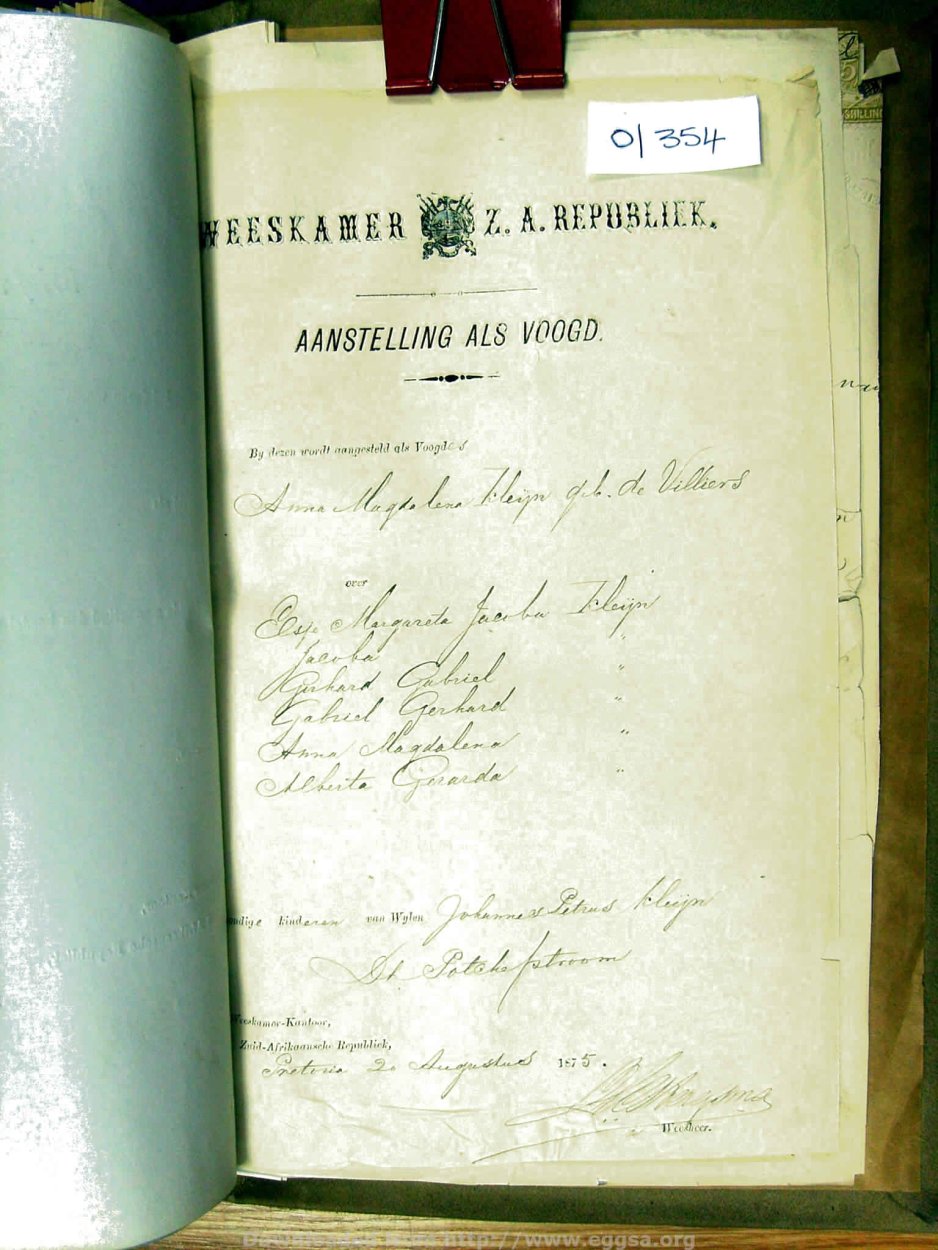 0/354
5
SHILLING
WEESKAMER Z. A. REPUBLIEK.
AANSTELLING ALS VOOGD.
By dezen wordt aangesteld als Voogdes
Anna Magdalena Kleijn geb. de Villiers
over
Elsje Margareta Jacoba Kleijn
Jacoba "
Gerhard Gabriel "
Gabriel Gerhard "
Anna Magdalena "
Alberta Gerarda "
ndige kinderen van Wylen Johannes Petrus Kleijn
Dt Potchefstroom
Weeskamer-Kantoor,
Zuid-Afrikaansche Republiek,
Pretoria 20 Augustus 1875.
Weesheer.
Downloaded from http://www.eggsa.org